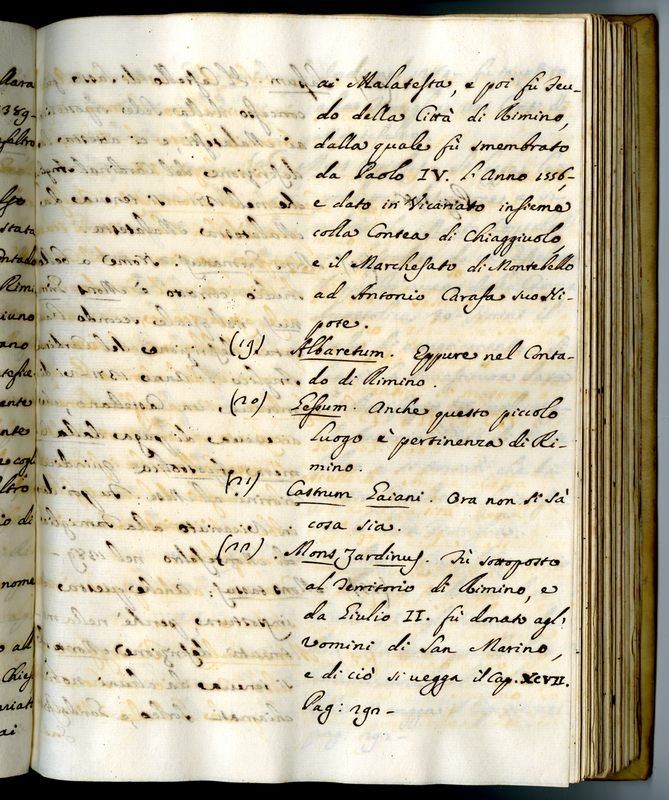 ai Malatesta, e poi fù Feu-
do della Città di Rimino,
dalla quale fù smembrato
da Paolo IV. l'Anno 1556,
e dato in Vicariato insieme
colla Contea di Chiaggiuolo
e il Marchesato di Montebello
ad Antonio Carafa suo Ni-
pote.
(19) Albaretum. Eppure nel Conta-
do di Rimino.
(20) Gessum. Anche questo piccolo
luogo è pertinenza di Ri-
mino.
(21) Castrum Gaiani. Ora non si sà
cosa sia.
(22) Mons Jardinus. Fù sottoposto
al Territorio di Rimino, e
da Giulio II. fù donato agl'
Vomini di San Marino,
e di ciò si vegga il Cap. XCVII.
Pag: 292-